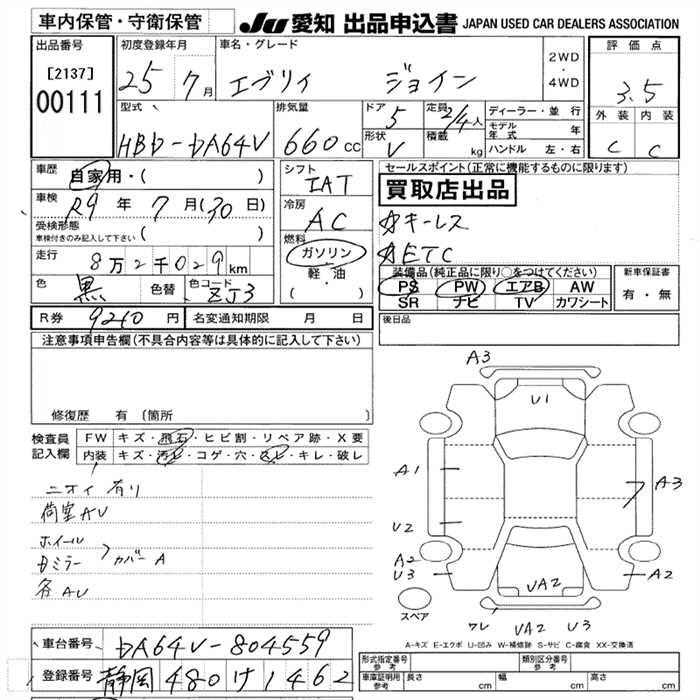 車内保管・守衛保管 JU 愛知 出品申込書 JAPAN USED CAR DEALERS ASSOCIATION
出品番号 初度登録年月 車名・グレード 評価点
[2137] 00111 25 7月 エブリイ ジョイン 2WD・4WD 3.5
型式 HBD-DA64V 排気量 660cc ドア 5 定員 2/4人 ディーラー・並行 外装 内装
形状 V 積載 kg モデル年式 年 C C
ハンドル 左・右
車歴 自家用・( ) シフト IAT セールスポイント(正常に機能するものに限ります)
車検 R9年 7月(30日) 冷房 AC 買取店出品
受検形態 車検付きのみ記入して下さい ( ) ☆キーレス
走行 8万2千029km 燃料 ガソリン ☆ETC
色 黒 色替 色コード ZJ3 軽・油 ( )
装備品(純正品に限り○をつけてください) 新車保証書
PS PW エアB AW 有・無
SR ナビ TV カワシート
R券 9210円 名変通知期限 月 日 後日品
注意事項申告欄(不具合内容等は具体的に記入して下さい)
修復歴 有 (箇所 )
検査員記入欄 FW キズ・飛石・ヒビ割・リペア跡・X要
内装 キズ・汚レ・コゲ・穴・スレ・キレ・破レ
ニオイ 有り
荷室AU
ホイール
Dミラー
カバーA
各AU
A3
U1
A1
A3
U2
A2
U3
A2
UA2
スペア
ワレ UA2 U3
A-キズ E-エクボ U-凹み W-補修跡 S-サビ C-腐食 XX-交換済
車台番号 DA64V-804559
登録番号 静岡 480 け 1462
形式指定番号 参考 類別区分番号 参考
車庫証明用 参考 長さ cm 幅 cm 高さ cm